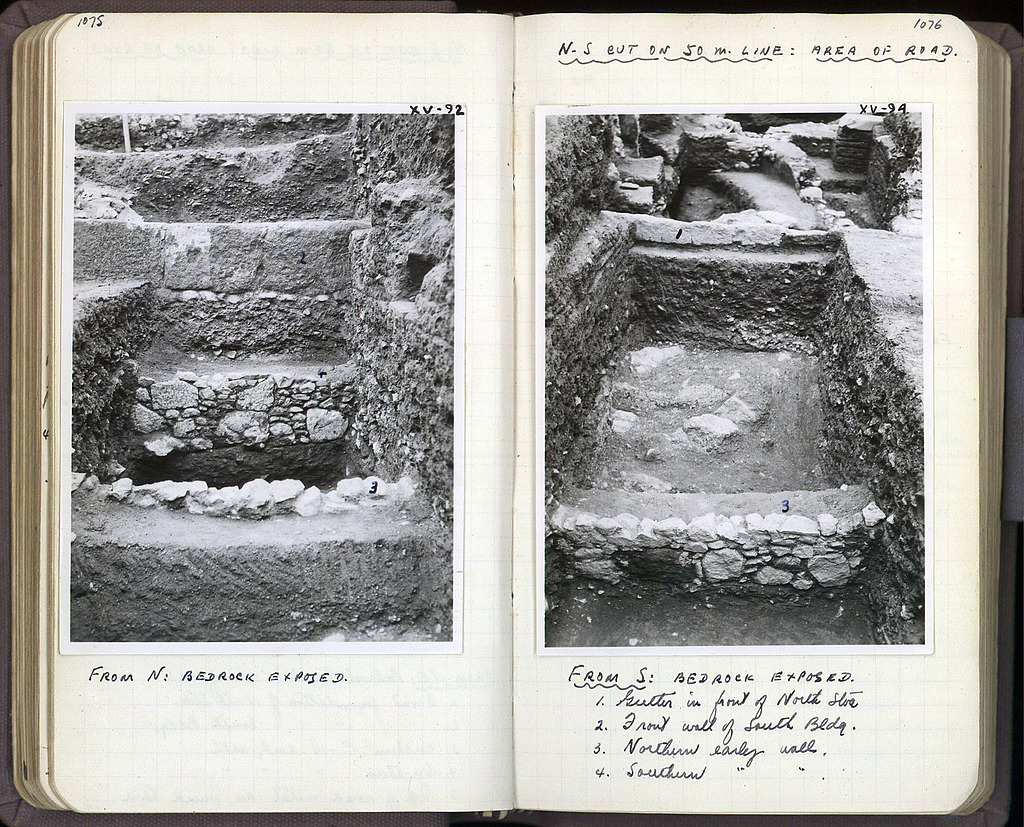 1075
XV-92
2
4
3
FROM N: BEDROCK EXPOSED.
1076
N-S CUT ON 50 M. LINE: AREA OF ROAD.
XV-94
1
3
FROM S: BEDROCK EXPOSED.
1. Gutter in front of North Stoa
2. Front wall of South Bldg.
3. Northern early wall.
4. Southern " " .